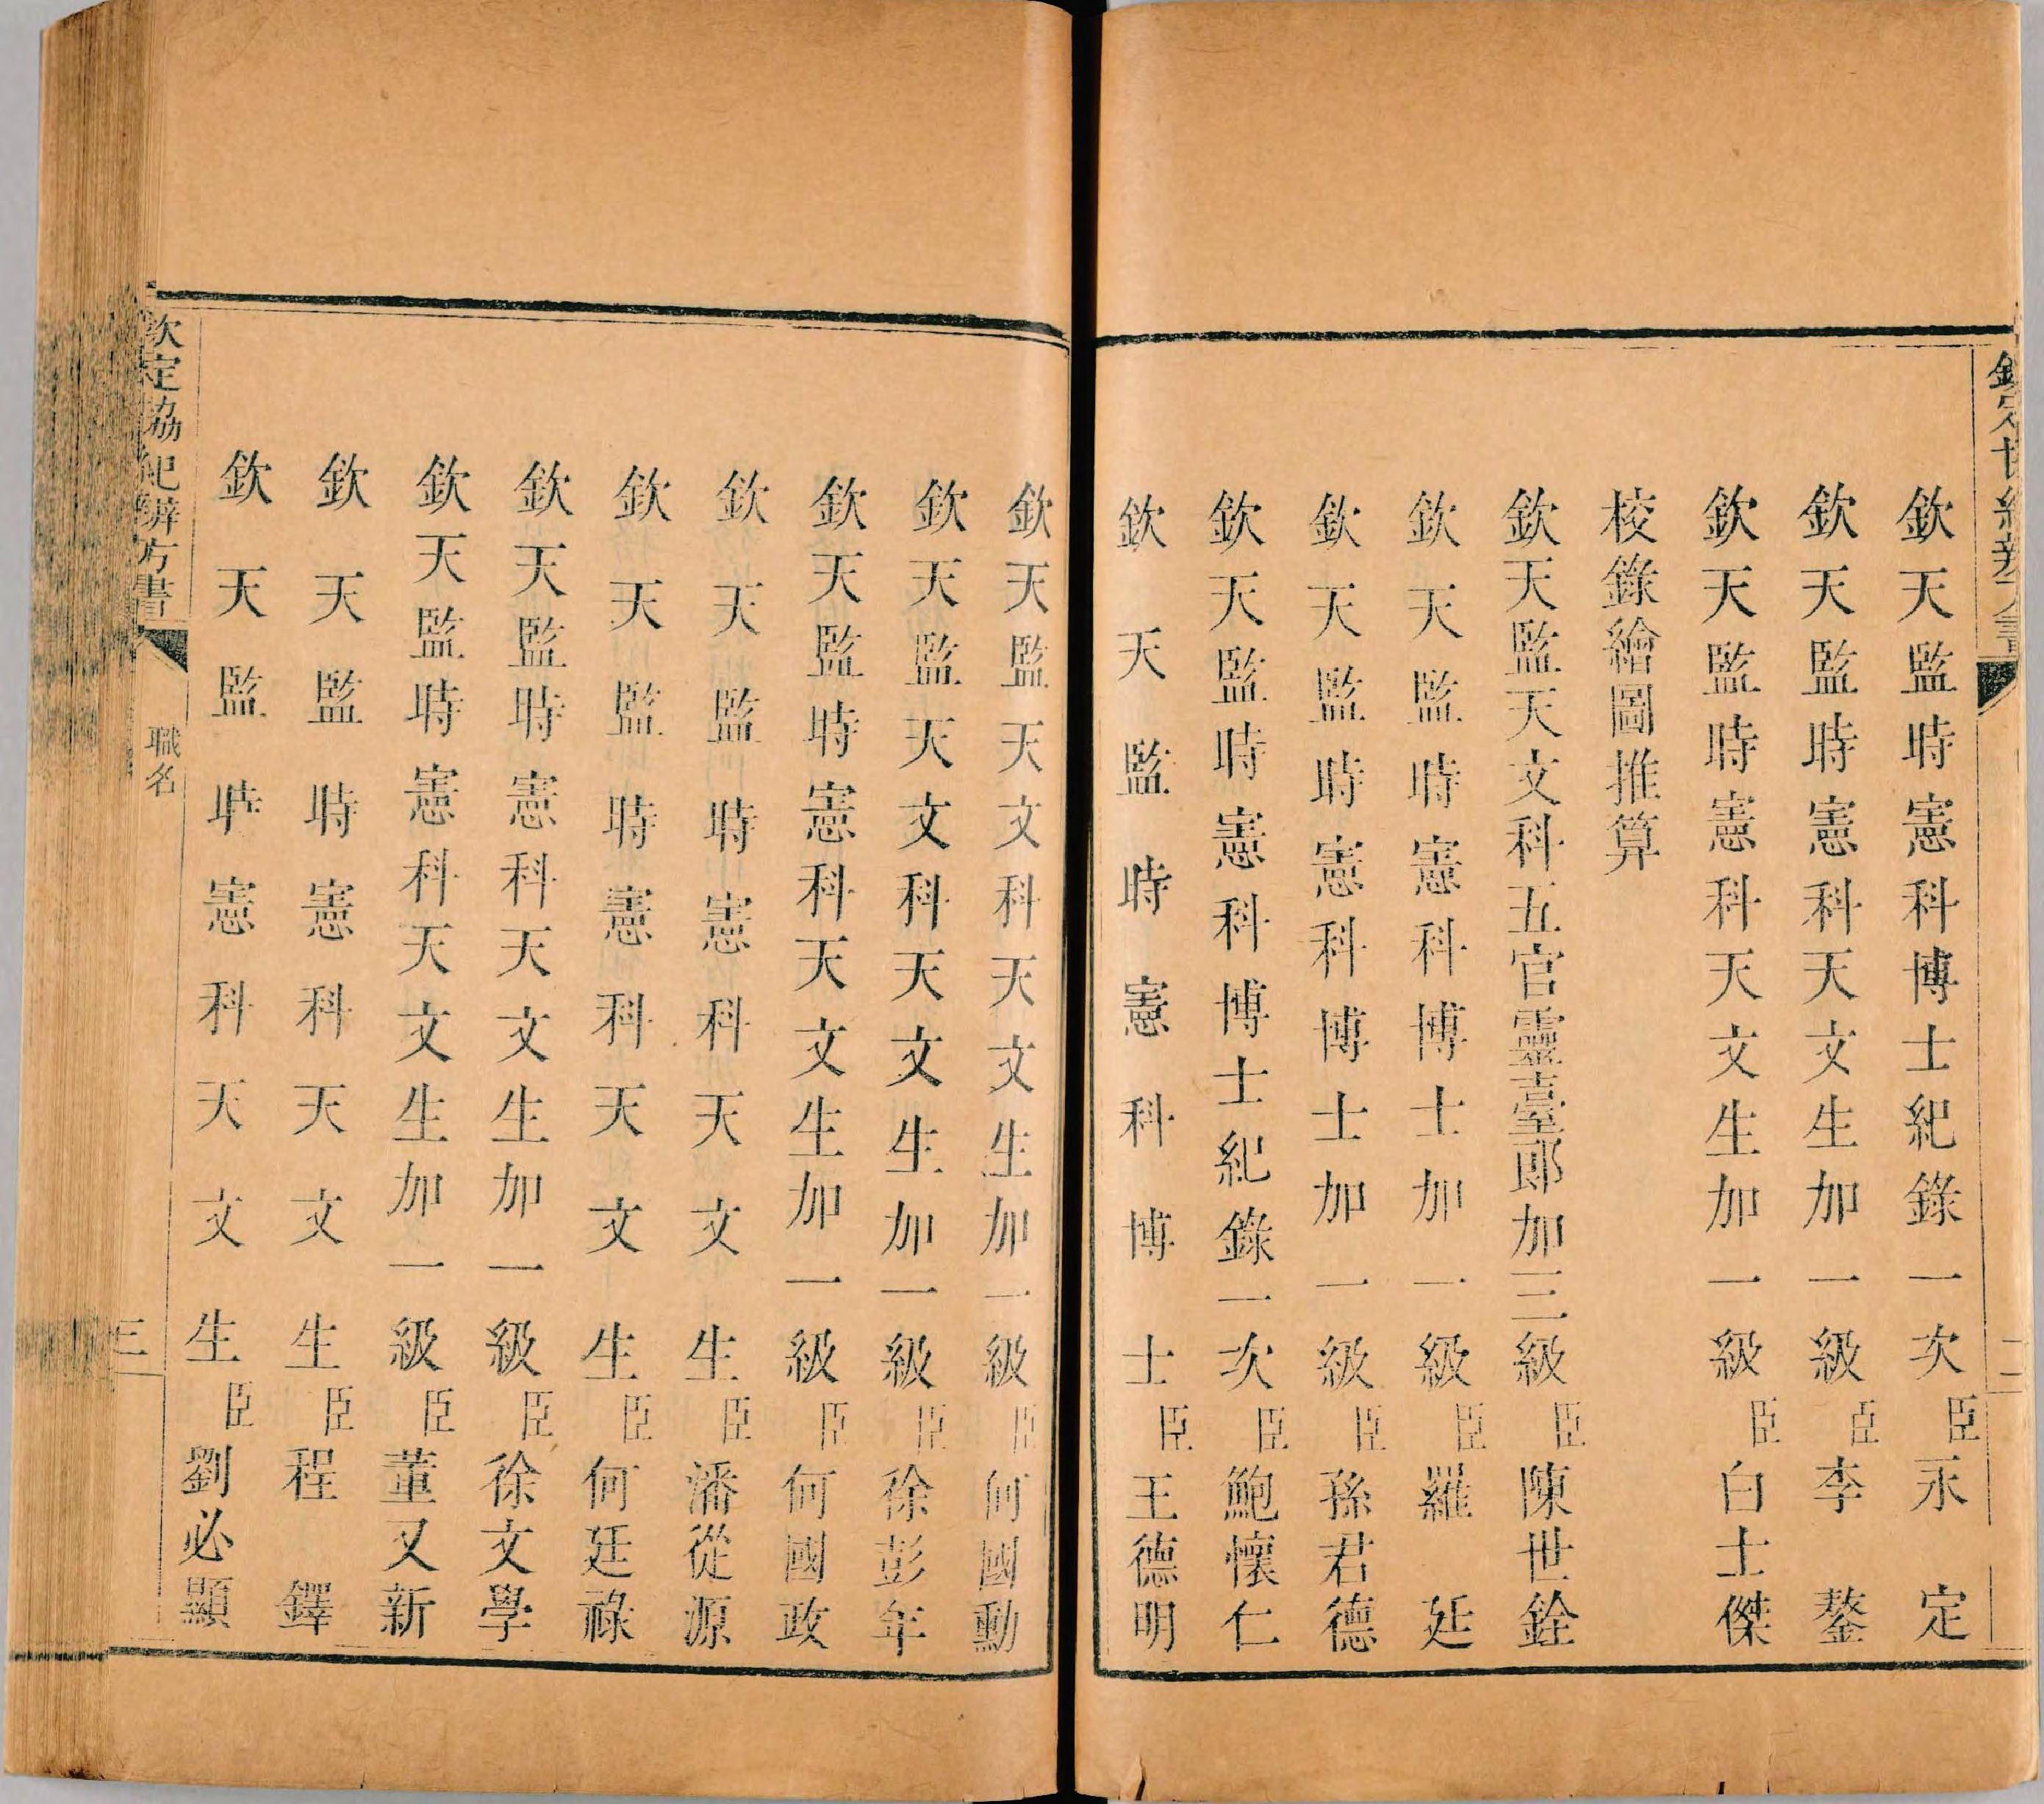 欽定協紀辨方書
二
欽天監時憲科博士紀錄一次臣永定
欽天監時憲科天文生加一級臣李鏊
欽天監時憲科天文生加一級臣白士傑
校錄繪圖推算
欽天監天文科五官靈臺郎加三級臣陳世銓
欽天監時憲科博士加一級臣羅廷
欽天監時憲科博士加一級臣孫君德
欽天監時憲科博士紀錄一次臣鮑懷仁
欽天監時憲科博士臣王德明
欽天監天文科天文生加一級臣何國勳
欽天監天文科天文生加一級臣徐彭年
欽天監時憲科天文生加一級臣何國政
欽天監時憲科天文生臣潘從源
欽天監時憲科天文生臣何廷祿
欽天監時憲科天文生加一級臣徐文學
欽天監時憲科天文生加一級臣董又新
欽天監時憲科天文生臣程鐸
欽天監時憲科天文生臣劉必顯
欽定協紀辨方書
職名
三